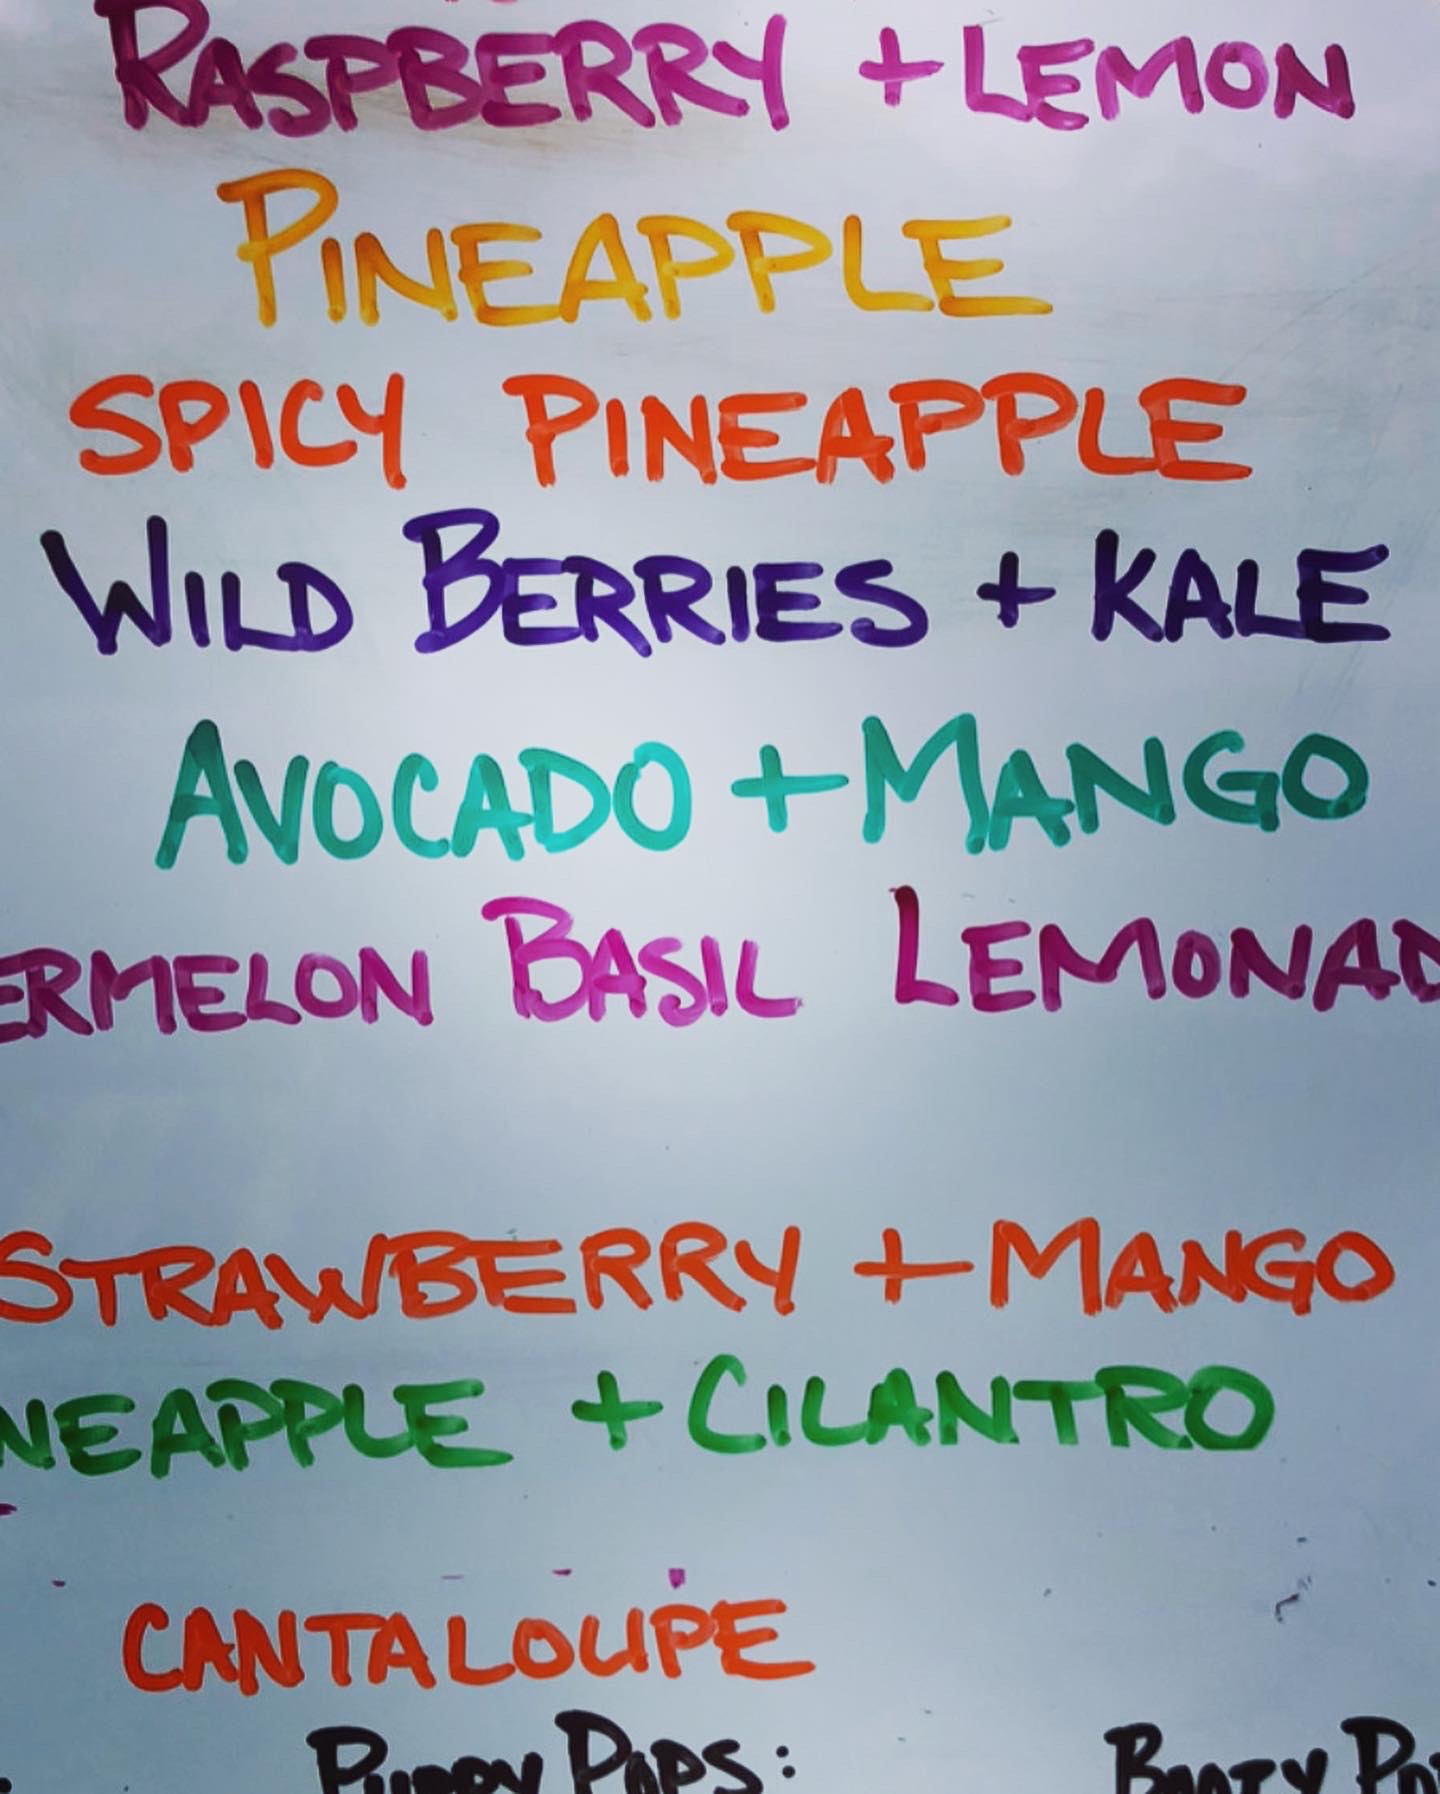 RASPBERRY + LEMON
PINEAPPLE
SPICY PINEAPPLE
WILD BERRIES + KALE
AVOCADO + MANGO
ERMELON BASIL LEMONAD
STRAWBERRY + MANGO
NEAPPLE + CILANTRO
CANTALOUPE
PUPPY POPS: BOOTY PO